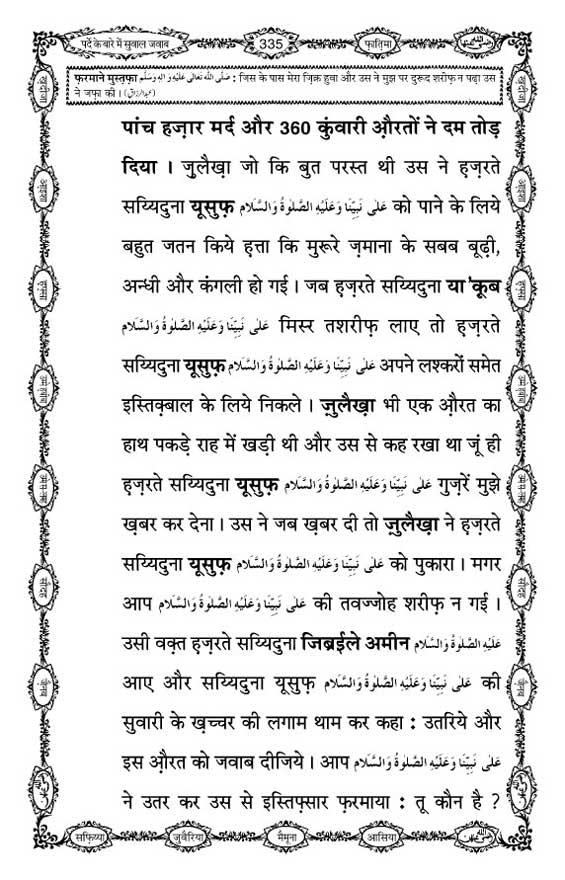 पर्दे के बारे में सुवाल जवाब
335
फ़ातिमा
फ़रमाने मुस्तफ़ा صَلَّى اللهُ تَعَالٰى عَلَيْهِ وَاٰلِهٖ وَسَلَّم : जिस के पास मेरा ज़िक्र हुवा और उस ने मुझ पर दुरूद शरीफ़ न पढ़ा उस
ने जफ़ा की। (عبدالرزاق)
पांच हज़ार मर्द और 360 कुंवारी औ़रतों ने दम तोड़
दिया । ज़ुलैख़ा जो कि बुत परस्त थी उस ने ह़ज़रते
सय्यिदुना यूसुफ़ عَلٰى نَبِيِّنَا وَعَلَيْهِ الصَّلٰوةُ وَالسَّلَام को पाने के लिये
बहुत जतन किये ह़त्ता कि मुरूरे ज़माना के सबब बूढ़ी,
अन्धी और कंगली हो गई । जब ह़ज़रते सय्यिदुना या'क़ूब
عَلٰى نَبِيِّنَا وَعَلَيْهِ الصَّلٰوةُ وَالسَّلَام मिस्र तशरीफ़ लाए तो ह़ज़रते
सय्यिदुना यूसुफ़ عَلٰى نَبِيِّنَا وَعَلَيْهِ الصَّلٰوةُ وَالسَّلَام अपने लश्करों समेत
इस्तिक़्बाल के लिये निकले । ज़ुलैख़ा भी एक औ़रत का
हाथ पकड़े राह में खड़ी थी और उस से कह रखा था जूं ही
ह़ज़रते सय्यिदुना यूसुफ़ عَلٰى نَبِيِّنَا وَعَلَيْهِ الصَّلٰوةُ وَالسَّلَام गुज़रें मुझे
ख़बर कर देना । उस ने जब ख़बर दी तो ज़ुलैख़ा ने ह़ज़रते
सय्यिदुना यूसुफ़ عَلٰى نَبِيِّنَا وَعَلَيْهِ الصَّلٰوةُ وَالسَّلَام को पुकारा । मगर
आप عَلٰى نَبِيِّنَا وَعَلَيْهِ الصَّلٰوةُ وَالسَّلَام की तवज्जोह शरीफ़ न गई ।
उसी वक़्त ह़ज़रते सय्यिदुना जिब्रईले अमीन عَلَيْهِ الصَّلٰوةُ وَالسَّلَام
आए और सय्यिदुना यूसुफ़ عَلٰى نَبِيِّنَا وَعَلَيْهِ الصَّلٰوةُ وَالسَّلَام की
सुवारी के ख़च्चर की लगाम थाम कर कहा : उतरिये और
इस औ़रत को जवाब दीजिये । आप عَلٰى نَبِيِّنَا وَعَلَيْهِ الصَّلٰوةُ وَالسَّلَام
ने उतर कर उस से इस्तिफ़्सार फ़रमाया : तू कौन है ?
सफ़िय्या
जुवैरिया
मैमूना
आसिया